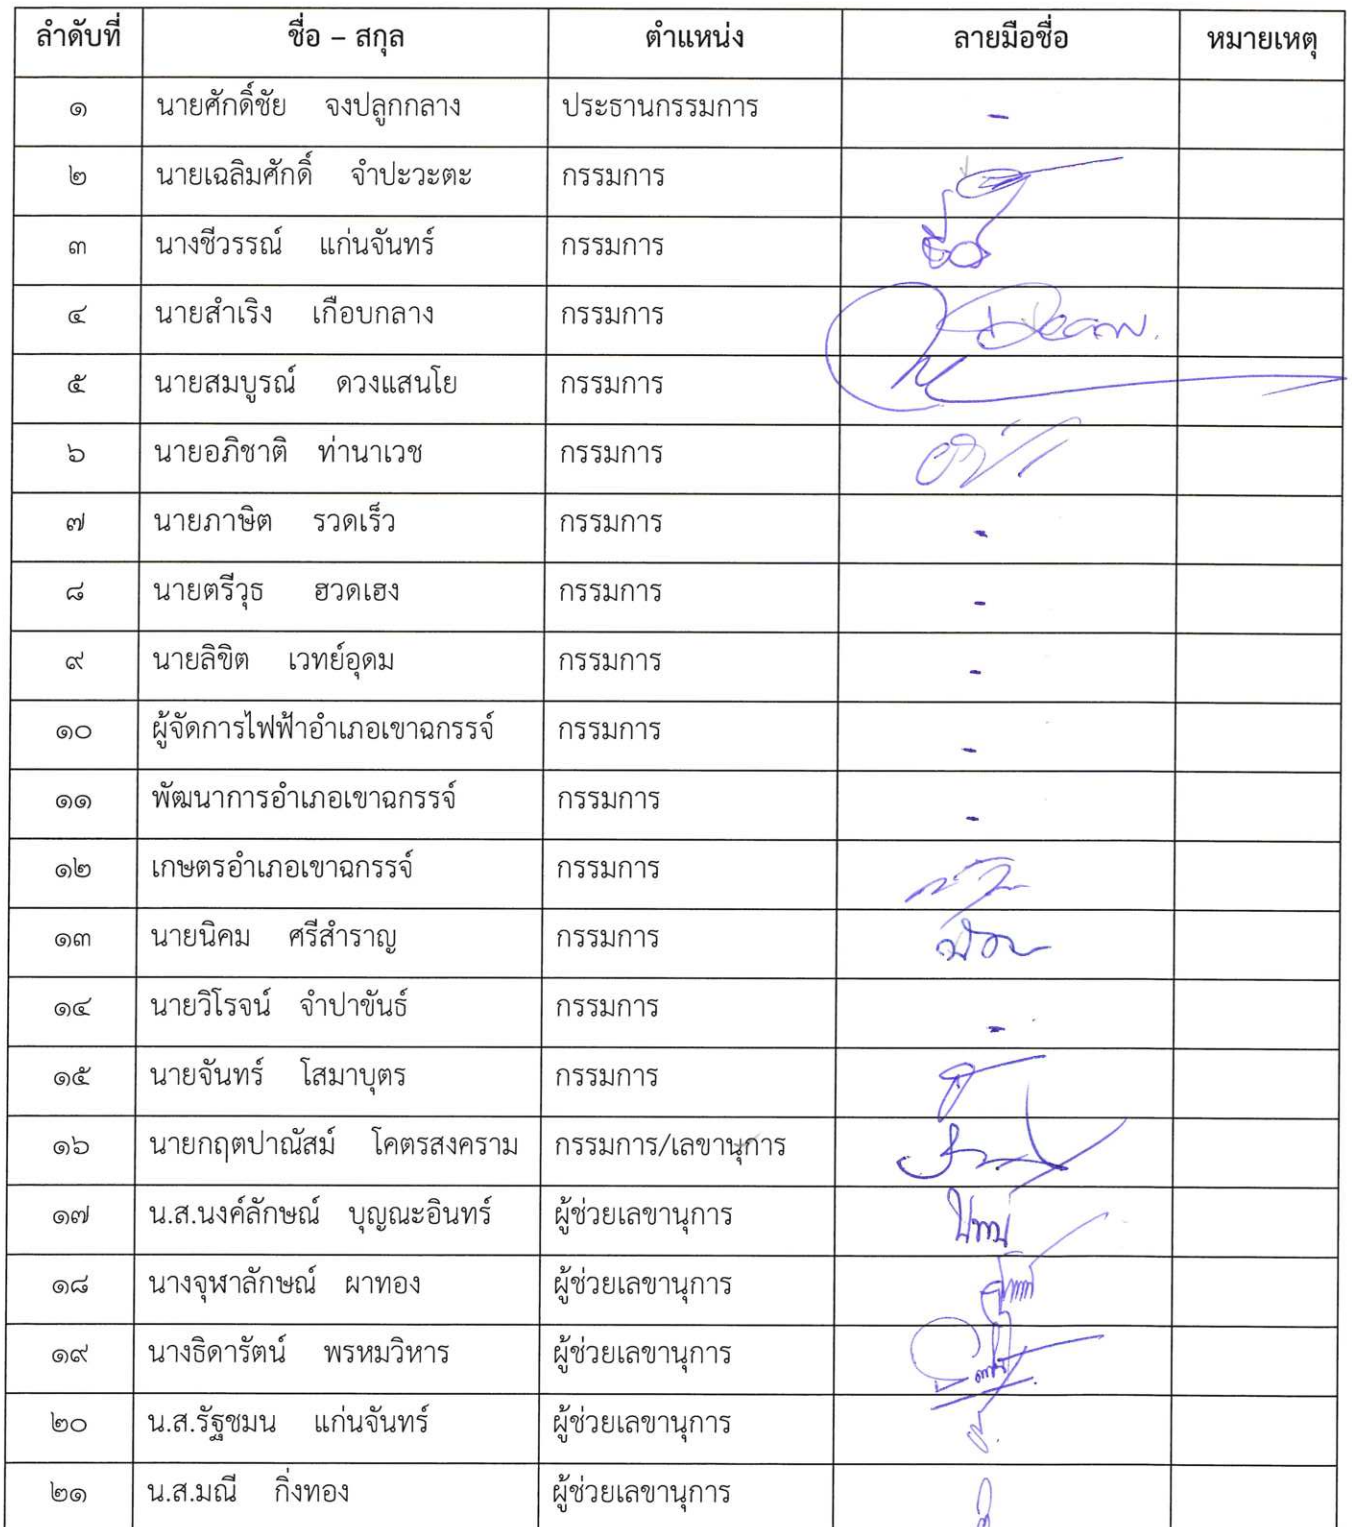 ลำดับที่ ชื่อ – สกุล ตำแหน่ง ลายมือชื่อ หมายเหตุ
๑ นายศักดิ์ชัย จงปลูกกลาง ประธานกรรมการ -
๒ นายเฉลิมศักดิ์ จำปะวะตะ กรรมการ
๓ นางชีวรรณ์ แก่นจันทร์ กรรมการ
๔ นายสำเริง เกือบกลาง กรรมการ
๕ นายสมบูรณ์ ดวงแสนโย กรรมการ
๖ นายอภิชาติ ท่านาเวช กรรมการ
๗ นายภาษิต รวดเร็ว กรรมการ -
๘ นายตรีวุธ ฮวดเฮง กรรมการ -
๙ นายลิขิต เวทย์อุดม กรรมการ -
๑๐ ผู้จัดการไฟฟ้าอำเภอเขาฉกรรจ์ กรรมการ -
๑๑ พัฒนาการอำเภอเขาฉกรรจ์ กรรมการ -
๑๒ เกษตรอำเภอเขาฉกรรจ์ กรรมการ
๑๓ นายนิคม ศรีสำราญ กรรมการ
๑๔ นายวิโรจน์ จำปาขันธ์ กรรมการ -
๑๕ นายจันทร์ โสมาบุตร กรรมการ
๑๖ นายกฤตปาณัสม์ โคตรสงคราม กรรมการ/เลขานุการ
๑๗ น.ส.นงค์ลักษณ์ บุญณะอินทร์ ผู้ช่วยเลขานุการ
๑๘ นางจุฬาลักษณ์ ผาทอง ผู้ช่วยเลขานุการ
๑๙ นางธิดารัตน์ พรหมวิหาร ผู้ช่วยเลขานุการ
๒๐ น.ส.รัฐชมน แก่นจันทร์ ผู้ช่วยเลขานุการ
๒๑ น.ส.มณี กิ่งทอง ผู้ช่วยเลขานุการ